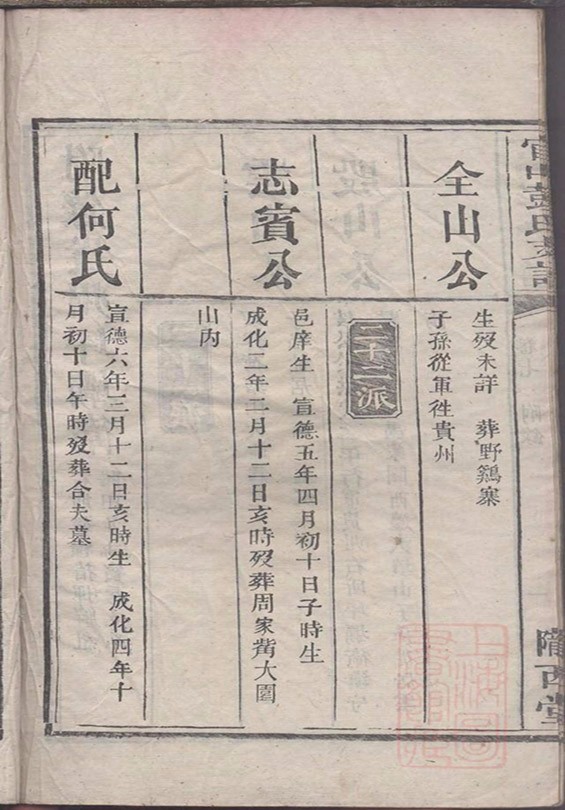 全山公
生歿未詳 葬野鷄寨
子孫從軍徃貴州
二十二派
志賓公
邑庠生 宣德五年四月初十日子時生
成化二年二月十二日亥時歿葬周家嵴大園
山內
配何氏
宣德六年三月十二日亥時生 成化四年十
月初十日午時歿葬合夫墓
彭氏支譜
隴西堂